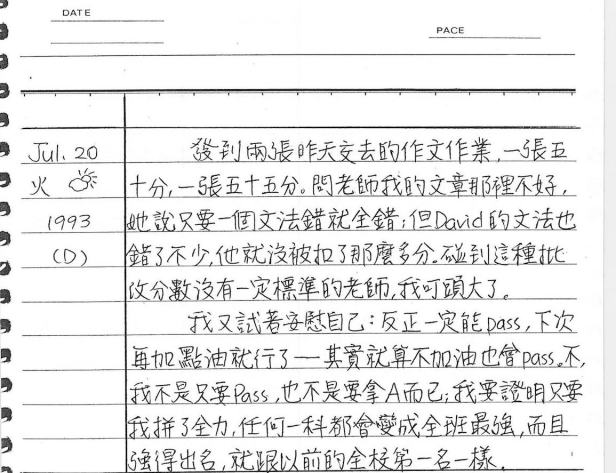 DATE
PACE
Jul. 20 發到兩張昨天交去的作文作業,一張五
火 十分,一張五十五分。問老師我的文章那裡不好,
1993 她說只要一個文法錯就全錯;但David的文法也
(D) 錯了不少,他就沒被扣了那麼多分。碰到這種批
改分數沒有一定標準的老師,我可頭大了。
我又試著安慰自己:反正一定能pass,下次
再加點油就行了—其實就算不加油也會pass。不,
我不是只要Pass,也不是要拿A而已;我要證明只要
我拼了全力,任何一科都會變成全班最強,而且
強得出名,就跟以前的全校第一名一樣.